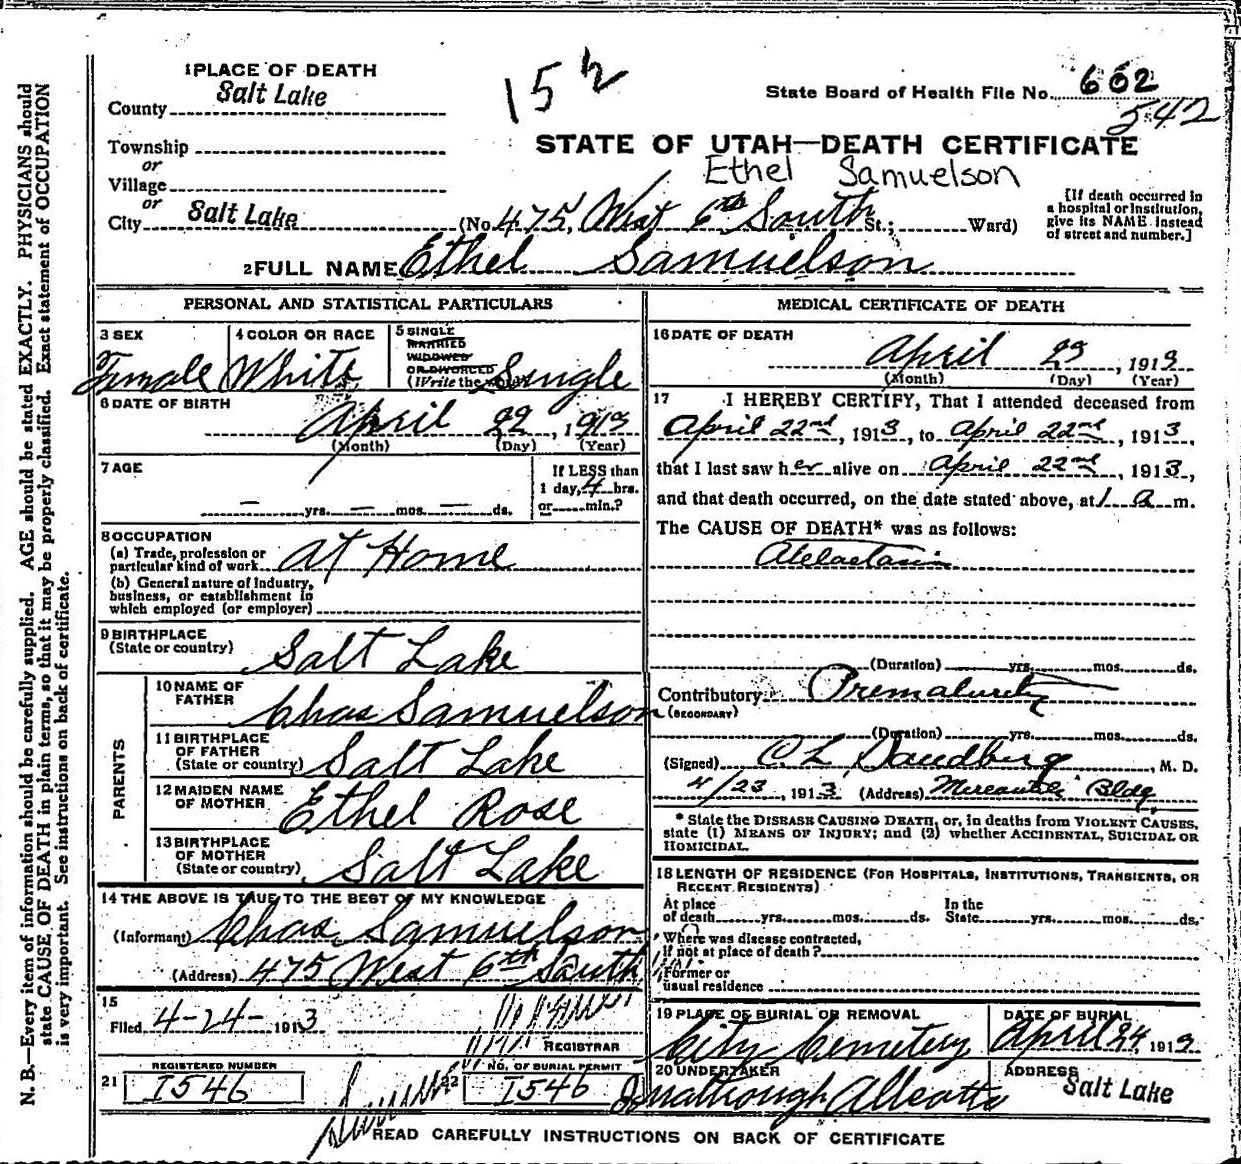 1 PLACE OF DEATH
County Salt Lake
Township
or
Village
or
City Salt Lake
15
State Board of Health File No. 602
542
STATE OF UTAH—DEATH CERTIFICATE
Ethel Samuelson
(No. 475, West 6th South St.; Ward)
[If death occurred in
a hospital or institution,
give its NAME instead
of street and number.]
2 FULL NAME Ethel Samuelson
PERSONAL AND STATISTICAL PARTICULARS
3 SEX
Female
4 COLOR OR RACE
White
5 SINGLE
MARRIED
WIDOWED
OR DIVORCED
(Write the word) Single
6 DATE OF BIRTH
April 22, 1913
(Month) (Day) (Year)
7 AGE
— yrs. — mos. — ds.
If LESS than
1 day, 4 hrs.
or min.?
8 OCCUPATION
(a) Trade, profession or
particular kind of work At Home
(b) General nature of industry,
business, or establishment in
which employed (or employer)
9 BIRTHPLACE
(State or country) Salt Lake
PARENTS
10 NAME OF
FATHER Chas Samuelson
11 BIRTHPLACE
OF FATHER
(State or country) Salt Lake
12 MAIDEN NAME
OF MOTHER Ethel Rose
13 BIRTHPLACE
OF MOTHER
(State or country) Salt Lake
14 THE ABOVE IS TRUE TO THE BEST OF MY KNOWLEDGE
(Informant) Chas. Samuelson
(Address) 475 West 6th South
15
Filed 4-24- 1913
REGISTRAR
REGISTERED NUMBER
21 I546
NO. OF BURIAL PERMIT
22 I546
MEDICAL CERTIFICATE OF DEATH
16 DATE OF DEATH
April 23, 1913
(Month) (Day) (Year)
17 I HEREBY CERTIFY, That I attended deceased from
April 22nd, 1913, to April 22nd, 1913,
that I last saw her alive on April 22nd, 1913,
and that death occurred, on the date stated above, at 1 a m.
The CAUSE OF DEATH* was as follows:
Atelectasis
(Duration) yrs. mos. ds.
Contributory Prematurity
(SECONDARY)
(Duration) yrs. mos. ds.
(Signed) C. L. Sandberg, M. D.
4/23, 1913 (Address) Mercantile Bldg.
* State the DISEASE CAUSING DEATH, or, in deaths from VIOLENT CAUSES,
state (1) MEANS OF INJURY; and (2) whether ACCIDENTAL, SUICIDAL OR
HOMICIDAL.
18 LENGTH OF RESIDENCE (FOR HOSPITALS, INSTITUTIONS, TRANSIENTS, OR
RECENT RESIDENTS)
At place
of death yrs. mos. ds.
In the
State yrs. mos. ds.
Where was disease contracted,
if not at place of death?
Former or
usual residence
19 PLACE OF BURIAL OR REMOVAL
City Cemetery
DATE OF BURIAL
April 24, 1913
20 UNDERTAKER
ADDRESS
Salt Lake
READ CAREFULLY INSTRUCTIONS ON BACK OF CERTIFICATE
N. B.—Every item of information should be carefully supplied. AGE should be stated EXACTLY. PHYSICIANS should
state CAUSE OF DEATH in plain terms, so that it may be properly classified. Exact statement of OCCUPATION
is very important. See instructions on back of certificate.